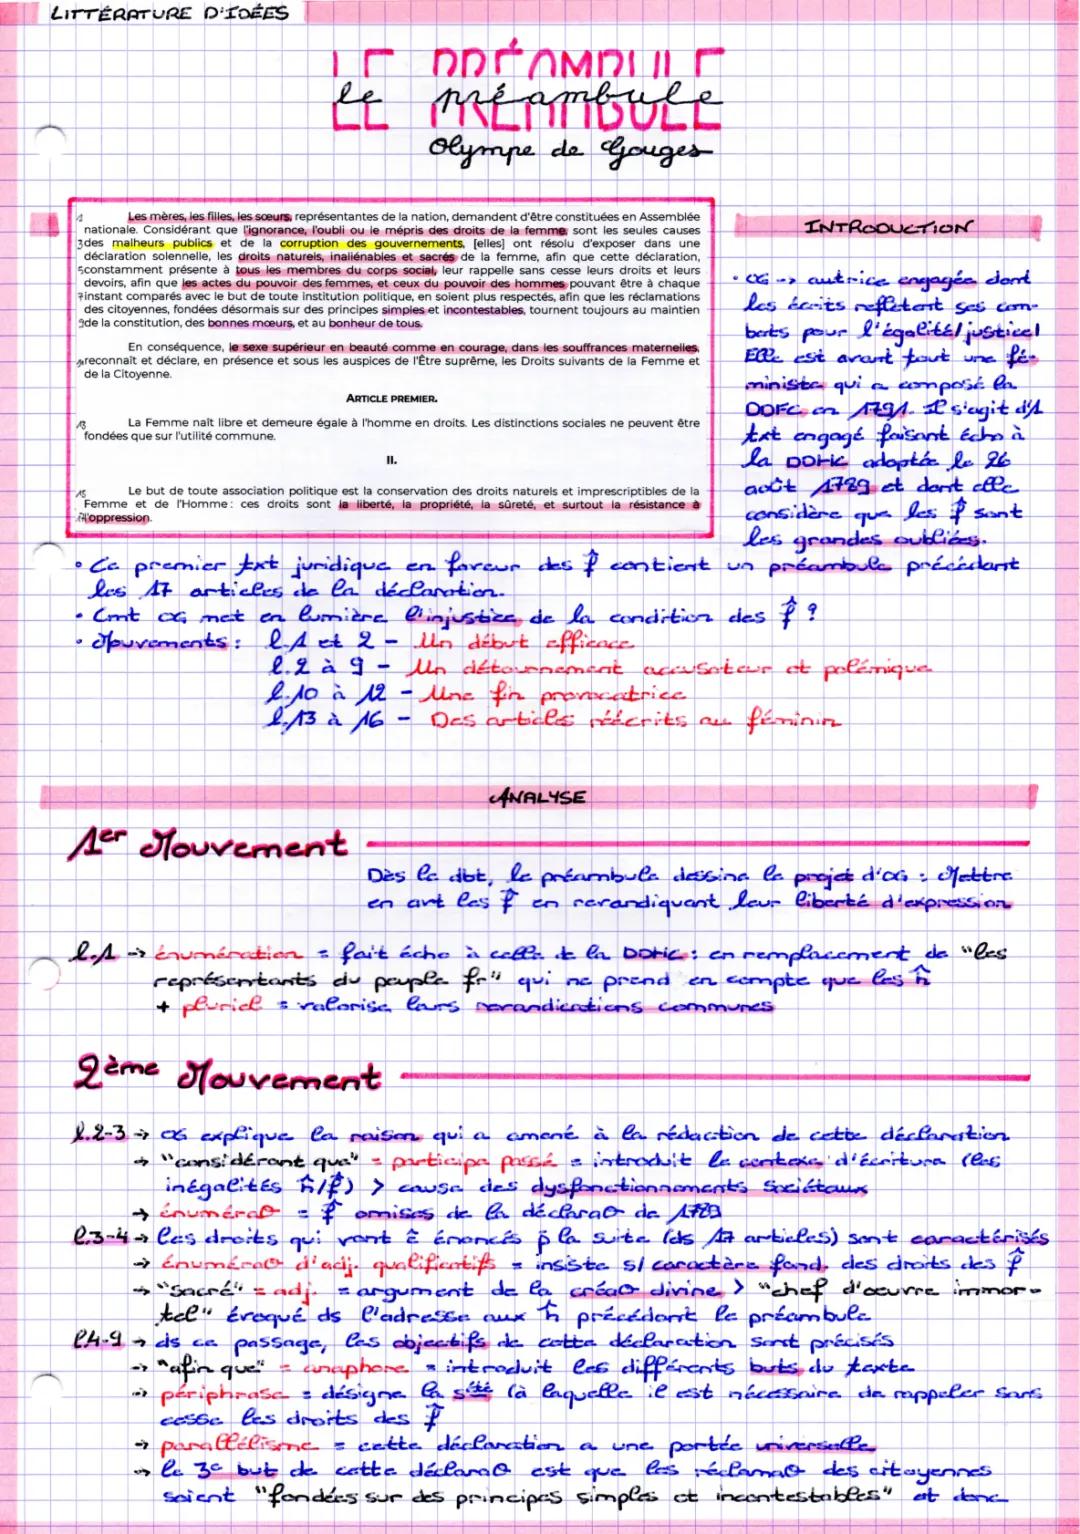 LITTÉRATURE D'IDÉES
LE PRÉAMBULE
le préambule
Olympe de Gouges
1 Les mères, les filles, les sœurs, représentantes de la nation, demandent d'être constituées en Assemblée
nationale. Considérant que l'ignorance, l'oubli ou le mépris des droits de la femme, sont les seules causes
3 des malheurs publics et de la corruption des gouvernements, [elles] ont résolu d'exposer dans une
déclaration solennelle, les droits naturels, inaliénables et sacrés de la femme, afin que cette déclaration,
5 constamment présente à tous les membres du corps social, leur rappelle sans cesse leurs droits et leurs
devoirs, afin que les actes du pouvoir des femmes, et ceux du pouvoir des hommes pouvant être à chaque
7 instant comparés avec le but de toute institution politique, en soient plus respectés, afin que les réclamations
des citoyennes, fondées désormais sur des principes simples et incontestables, tournent toujours au maintien
9 de la constitution, des bonnes mœurs, et au bonheur de tous.
En conséquence, le sexe supérieur en beauté comme en courage, dans les souffrances maternelles,
11 reconnaît et déclare, en présence et sous les auspices de l'Être suprême, les Droits suivants de la Femme et
de la Citoyenne.
ARTICLE PREMIER.
13 La Femme naît libre et demeure égale à l'homme en droits. Les distinctions sociales ne peuvent être
fondées que sur l'utilité commune.
II.
15 Le but de toute association politique est la conservation des droits naturels et imprescriptibles de la
Femme et de l'Homme : ces droits sont la liberté, la propriété, la sûreté, et surtout la résistance à
l'oppression.
INTRODUCTION
• OG -> autrice engagée dont
les écrits reflètent ses com-
bats pour l'égalité/justice!
Elle est avant tout une fé-
ministe qui a composé la
DDFC en 1791. Il s'agit d'1
txt engagé faisant écho à
la DDHC adoptée le 26
août 1789 et dont elle
considère que les f̂ sont
les grandes oubliées.
• Ce premier txt juridique en faveur des f̂ contient un préambule précédant
les 17 articles de la déclaration.
• Cmt OG met en lumière l'injustice de la condition des f̂ ?
• Mouvements : l.1 et 2 - Un début efficace
l.2 à 9 - Un détournement accusateur et polémique
l.10 à 12 - Une fin provocatrice
l.13 à 16 - Des articles réécrits au féminin
ANALYSE
1er Mouvement
Dès le dbt, le préambule dessine le projet d'OG : Mettre
en avt les f̂ en revendiquant leur liberté d'expression
l.1 -> énumération = fait écho à celle de la DDHC : en remplacement de "les
représentants du peuple fr" qui ne prend en compte que les ĥ
+ pluriel = valorise leurs revendications communes
2ème Mouvement
l.2-3 -> OG explique la raison qui a amené à la rédaction de cette déclaration
-> "considérant que" = participe passé = introduit le contexe d'écriture (les
inégalités ĥ/f̂) > cause des dysfonctionnements sociétaux
-> énuméraᴑ = f̂ omises de la déclaraᴑ de 1789
l.3-4 -> les droits qui vont ê énoncés p̄ la suite (ds 17 articles) sont caractérisés
-> énuméraᴑ d'adj. qualificatifs = insiste s/ caractère fond. des droits des f̂
-> "sacré" = adj. = argument de la créaᴑ divine > "chef d'œuvre immor-
tel" évoqué ds l'adresse aux ĥ précédant le préambule
l.4-9 -> ds ce passage, les objectifs de cette déclaration sont précisés
-> "afin que" = anaphore = introduit les différents buts du texte
-> périphrase = désigne la sété (à laquelle il est nécessaire de rappeler sans
cesse les droits des f̂
-> parallélisme = cette déclaration a une portée universelle
-> le 3e but de cette déclaraᴑ est que les réclamaᴑ des citoyennes
soient "fondées sur des principes simples et incontestables" et donc